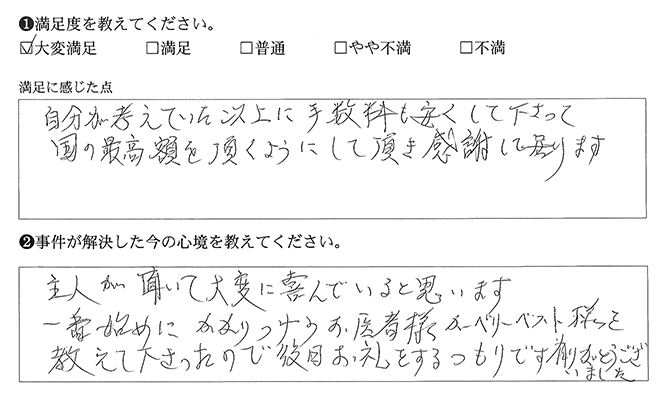 ❶満足度を教えてください。
☑大変満足 □満足 □普通 □やや不満 □不満
満足に感じた点
自分が考えていた以上に手数料も安くして下さって
国の最高額を頂くようにして頂き感謝して居ります
❷事件が解決した今の心境を教えてください。
主人が聞いて大変に喜んでいると思います
一番始めにかかりつけのお医者様がベリーベスト様を
教えて下さったので後日お礼をするつもりです有りがとうござ
いました